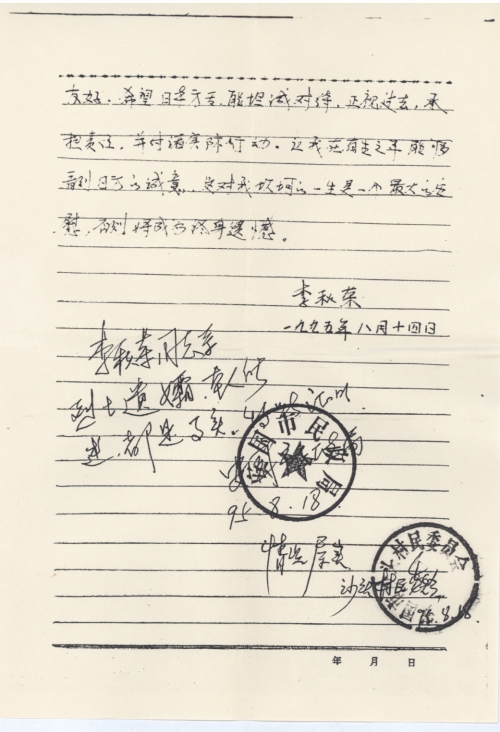 友好。希望日本方面,能坦诚对待,正视过去,承
担责任,并付诸实际行动。让我在有生之年能够
看到日方的诚意,是对我坎坷的一生是一个最大的安
慰,否则将成为终身遗憾。
李秋荣
一九九五年八月十四日
李秋荣同志系
烈士遗孀
都是事实。
安国市民政局
95.8.18
情况属实
村民委员会
95.8.18
年 月 日